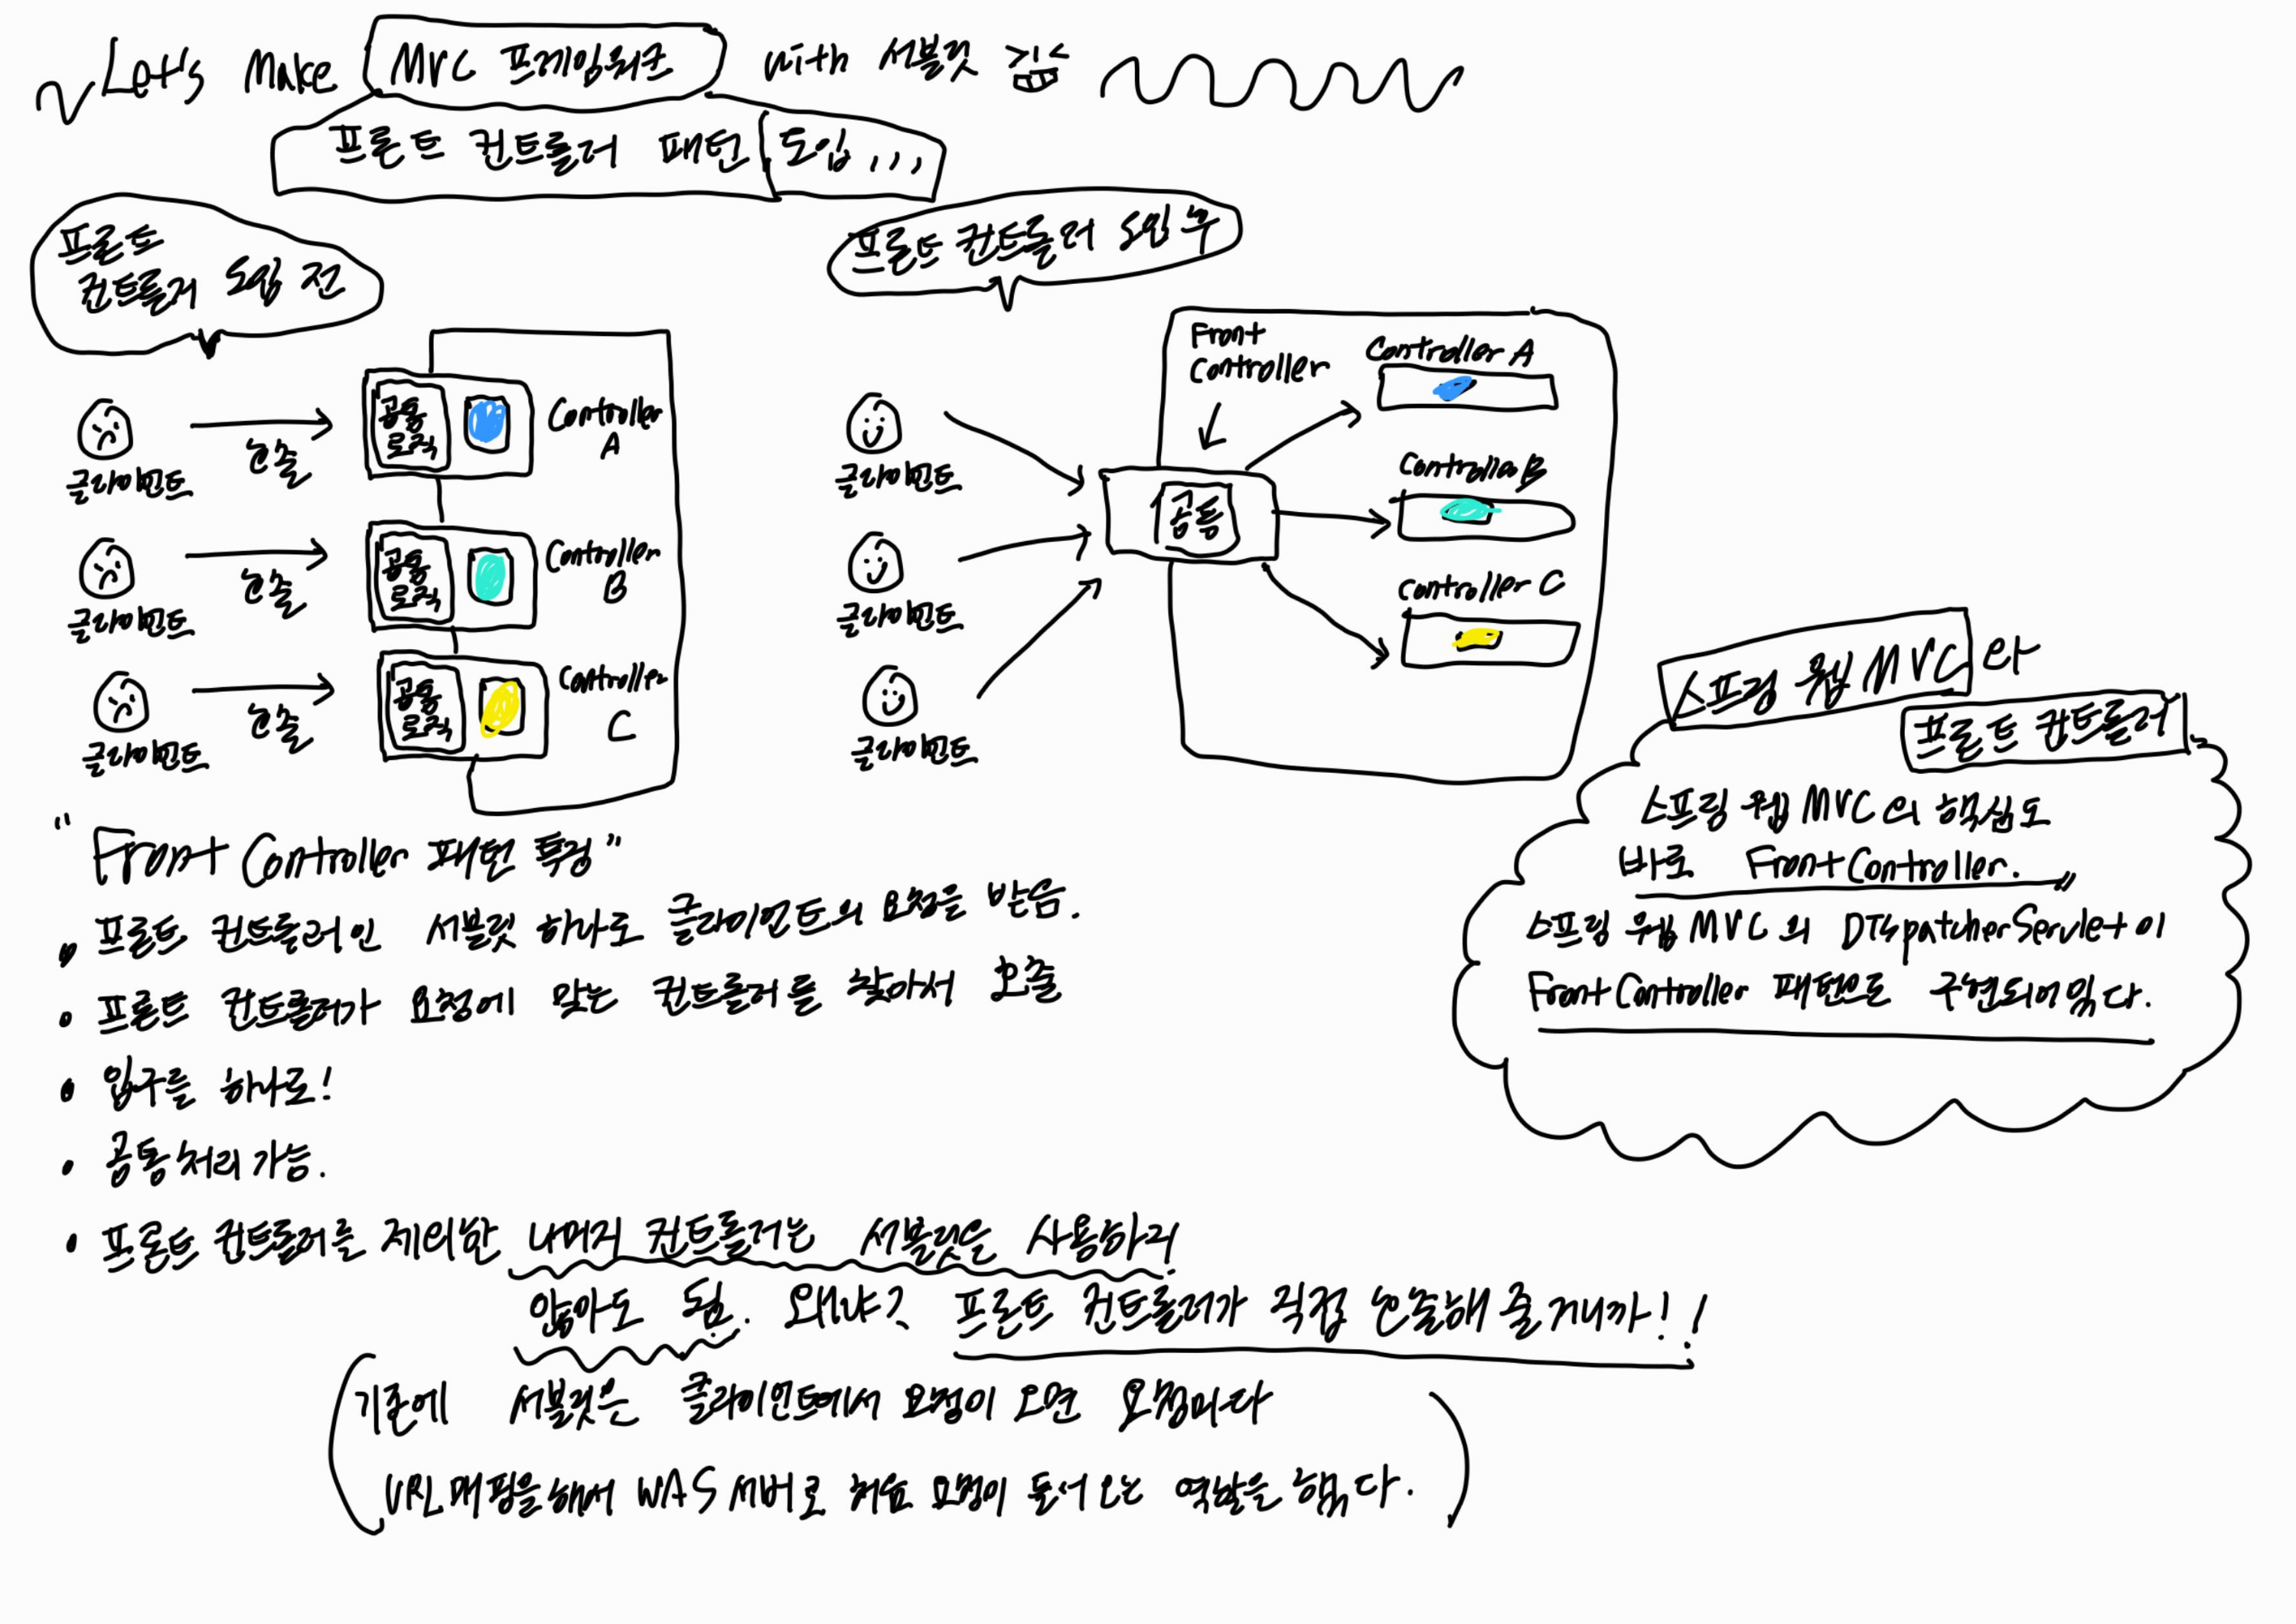 Let's Make MVC 프레임워크 with 서블릿
프론트 컨트롤러 패턴 도입,,,
프론트
컨트롤러 도입 전
클라이언트
호출
공통
로직
Controller
A
클라이언트
호출
공통
로직
Controller
B
클라이언트
호출
공통
로직
Controller
C
프론트 컨트롤러 도입 후
클라이언트
클라이언트
클라이언트
Front
Controller
공통
Controller A
Controller B
Controller C
스프링 웹 MVC 와
프론트 컨트롤러
스프링 웹 MVC의 핵심도
바로 FrontController.
스프링 웹 MVC의 DispatcherServlet이
FrontController 패턴으로 구현되어있다.
"Front Controller 패턴 특징"
• 프론트 컨트롤러인 서블릿 하나로 클라이언트의 요청을 받음.
• 프론트 컨트롤러가 요청에 맞는 컨트롤러를 찾아서 호출
• 입구를 하나로!
• 공통 처리 가능.
• 프론트 컨트롤러를 제외한 나머지 컨트롤러는 서블릿을 사용하지
않아도 됨. 왜냐? 프론트 컨트롤러가 직접 호출해 줄거니까!!
(기존에 서블릿은 클라이언트에서 요청이 오면 요청마다
URL 매핑을 해서 WAS 서버로 처음 요청이 들어오는 역할을 했다.)